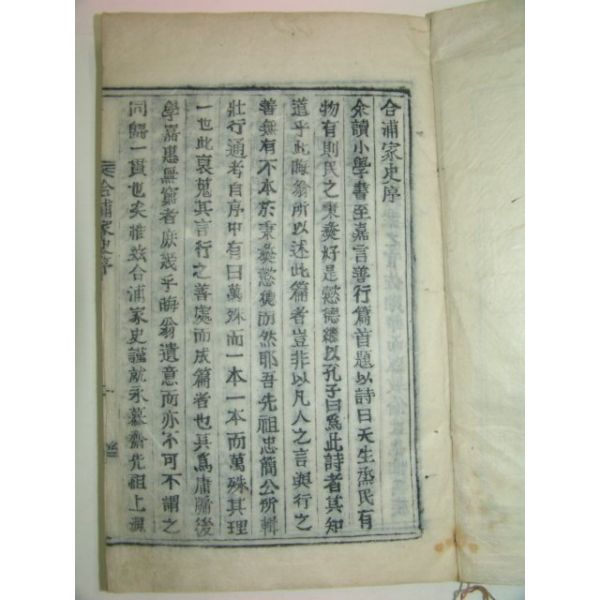 合浦家史序
余讀小學書至嘉言善行篇首題以詩曰天生烝民有
物有則民之秉彝好是懿德繼以孔子曰爲此詩者其知
道乎此晦翁所以述此篇者豈非以凡人之言與行之
善無有不本於秉彝懿德而然耶吾先祖忠簡公所輯
壯行通考自序中有曰萬殊而一本一本而萬殊其理
一也此裒蒐其言行之善處而成篇者也其爲庸牖後
學嘉惠無窮者庶幾乎晦翁遺意而亦不可不謂之
同歸一貫也矣惟玆合浦家史謹就永慕齋先祖上溯
合浦家史序
一